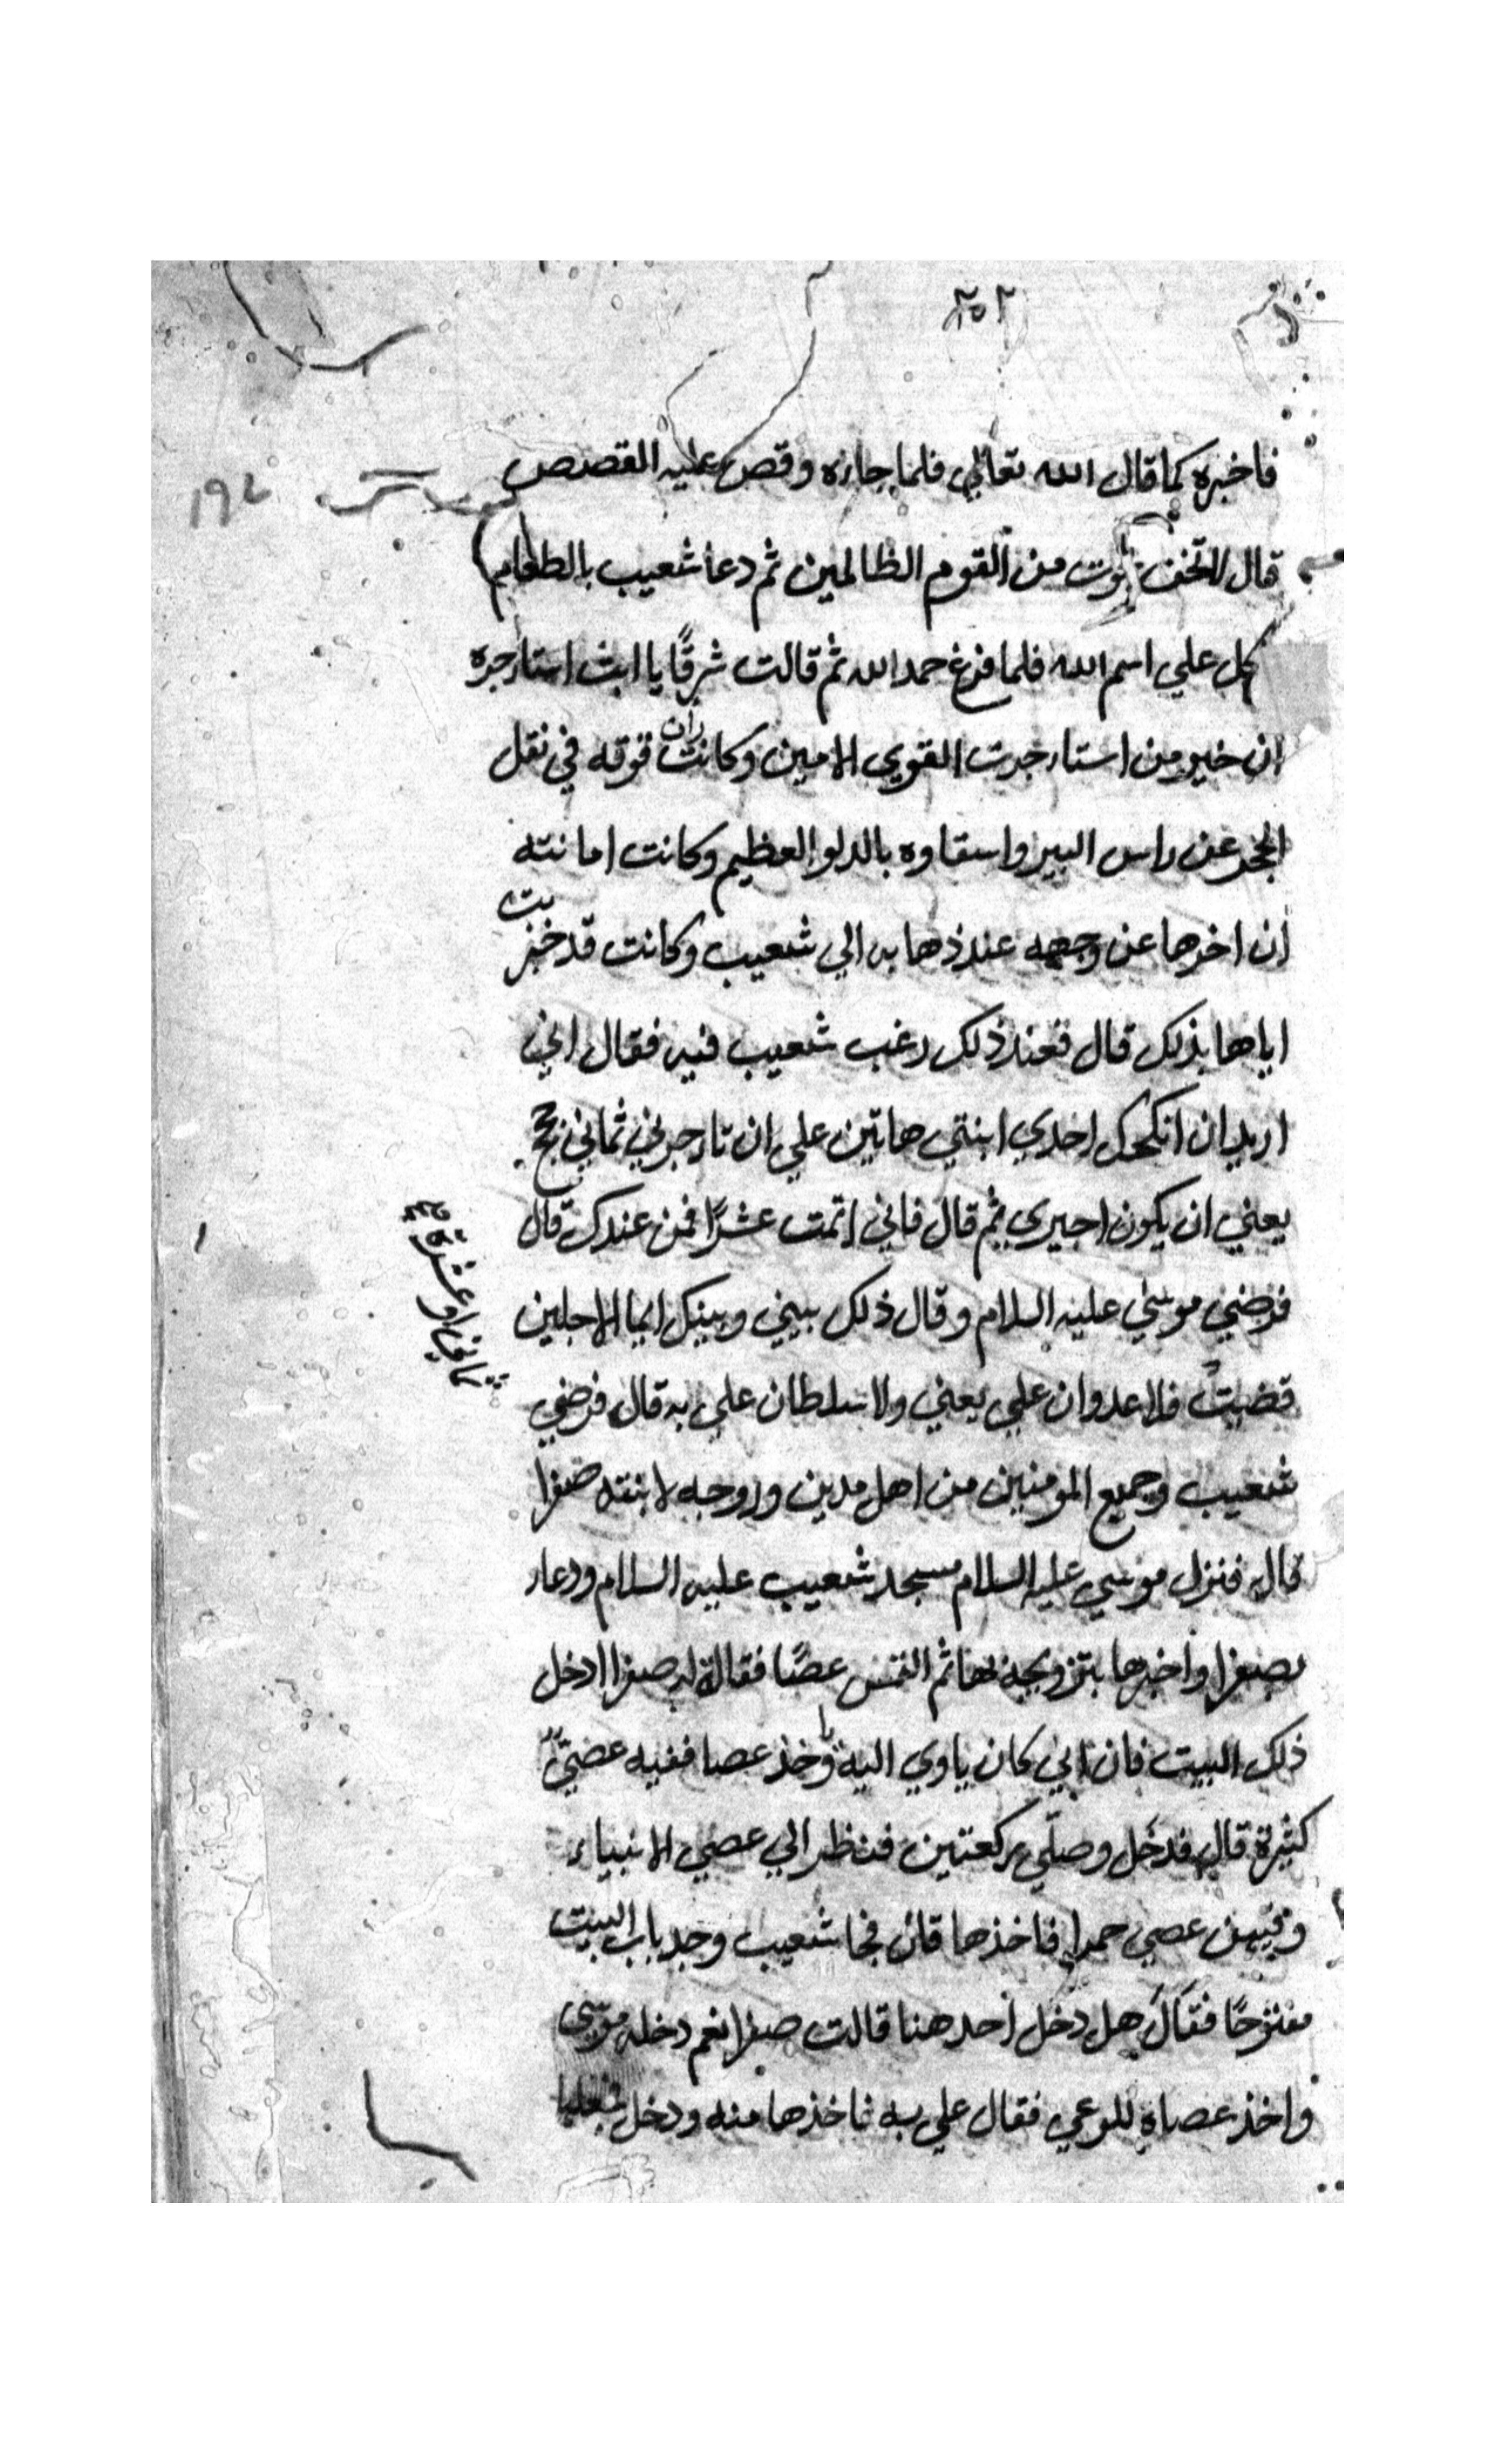 ٢٥٢
١٩٢
فاخبره كما قال الله تعالي فلما جاءه وقص عليه القصص
قال لا تخف نجوت من القوم الظالمين ثم دعا شعيب بالطعام
كل علي اسم الله فلما فرغ حمد الله ثم قالت شرقًا يا ابت استارجره
ان خير من استارجرت القوي الامين وكانت قوته في نقل
الحجر عن راس البير واسقاوه بالدلو العظيم وكانت امانته
أن اخرها عن وجهه عند ذهابه الي شعيب وكانت قد خبرت
اباها بذلك قال فعند ذلك رغب شعيب فيه فقال اني
اريد ان انكحك احدي ابنتي هاتين علي ان تارجرني ثماني حجج
يعني ان يكون اجيري ثم قال فاني اتمت عشرًا فمن عندك قال
فرضي موسي عليه السلام وقال ذلك بيني وبينك ايما الاجلين
قضيتُ فلا عدوان علي يعني ولا سلطان علي به قال فرضي
شعيب وجميع المومنين من اهل مدين وزوجه لابنته صفرا
قال فنزل موسي عليه السلام مسجد شعيب عليه السلام ودعا
بصفرا واخبرها بتزويجه لها ثم التمس عصًا فقالة له صفرا ادخل
ذلك البيت فان ابي كان ياوي اليه وأخذ عصا ففيه عصيٌّ
كثيرة قال فدخل وصلّي ركعتين فنظر الي عصي الانبياء
وبينهن عصي حمرا فاخذها قال فجا شعيب وجد باب البيت
مفتوحًا فقال هل دخل احد هنا قالت صفرا نعم دخله موسي
واخذ عصاة للرعي فقال علي به فاخذها منه ودخل
ثمانية او عشرة